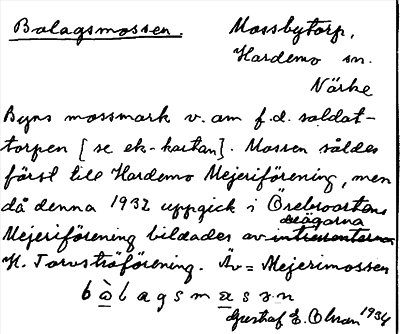 Bolagsmossen.
Mossbytorp,
Hardemo sn.
Närke
Byns mossmark v. om f.d. soldat-
torpen [se ek-kartan]. Mossen såldes
först till Hardemo Mejeriförening, men
då denna 1932 uppgick i Örebroortens
Mejeriförening bildades av intressenterna delägarna
H. Torvströförening. Äv = Mejerimossen
bòlagsmasən
Gustaf E. Olsson 1934